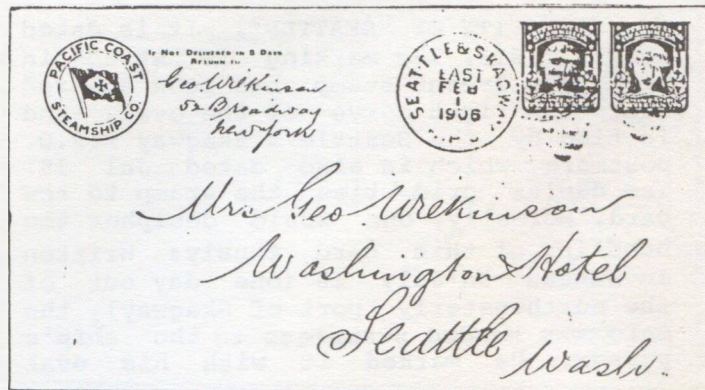 PACIFIC COAST
STEAMSHIP CO.
IF NOT DELIVERED IN 5 DAYS
RETURN TO
Geo Wilkinson
52 Broadway
New York
SEATTLE & SKAGWAY
EAST
FEB
1
1906
R.P.O.
Mrs. Geo. Wilkinson
Washington Hotel
Seattle
Wash.